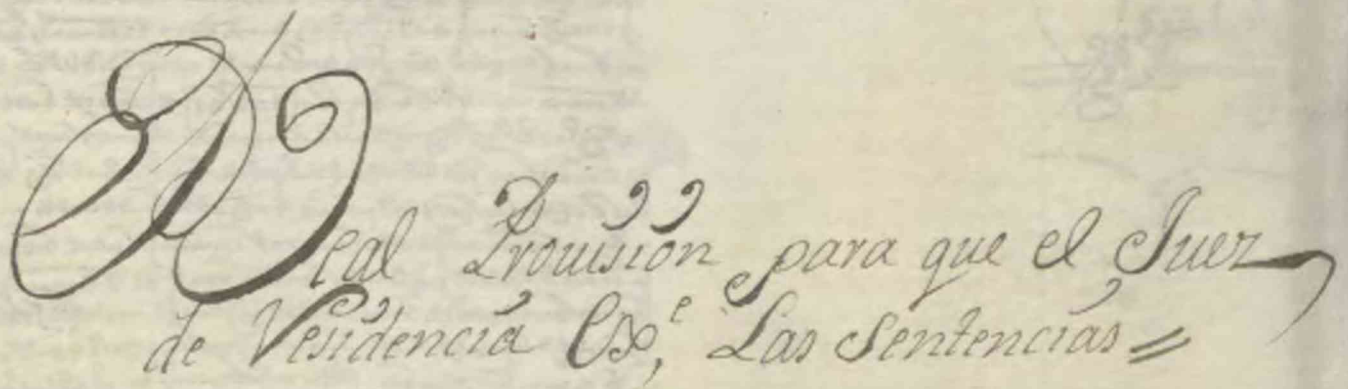 Real Provisión para que el Juez
de Residencia Exe, Las Sentencias =